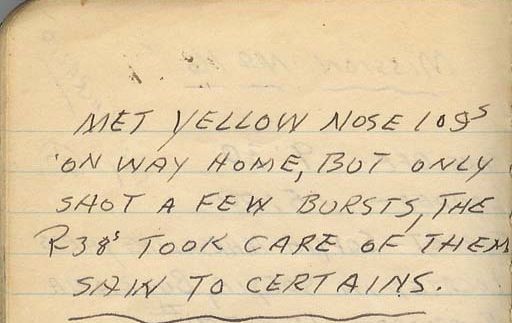 MET YELLOW NOSE 109S
ON WAY HOME, BUT ONLY
SHOT A FEW BURSTS, THE
P38S TOOK CARE OF THEM
TO CERTAINS.